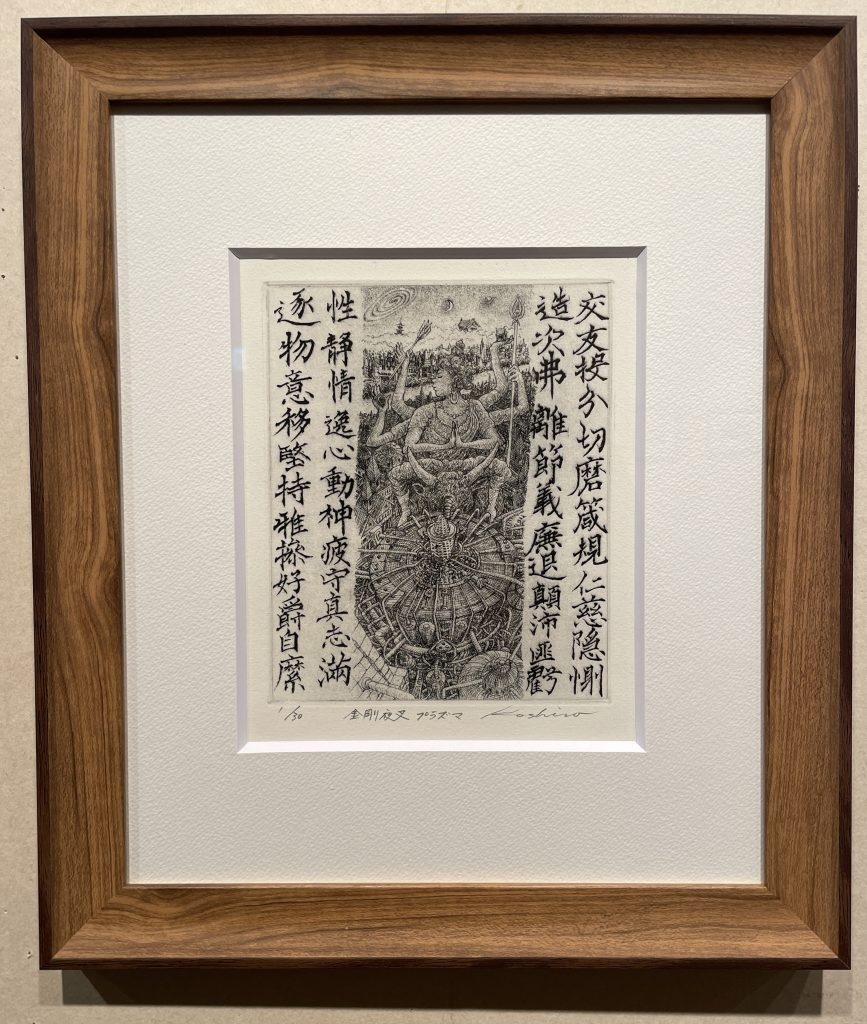 交友投分切磨箴規仁慈隠惻
造次弗離節義廉退顛沛匪虧
性静情逸心動神疲守真志満
逐物意移堅持雅操好爵自縻
1/30 金剛夜叉 プラズマ Koshiro